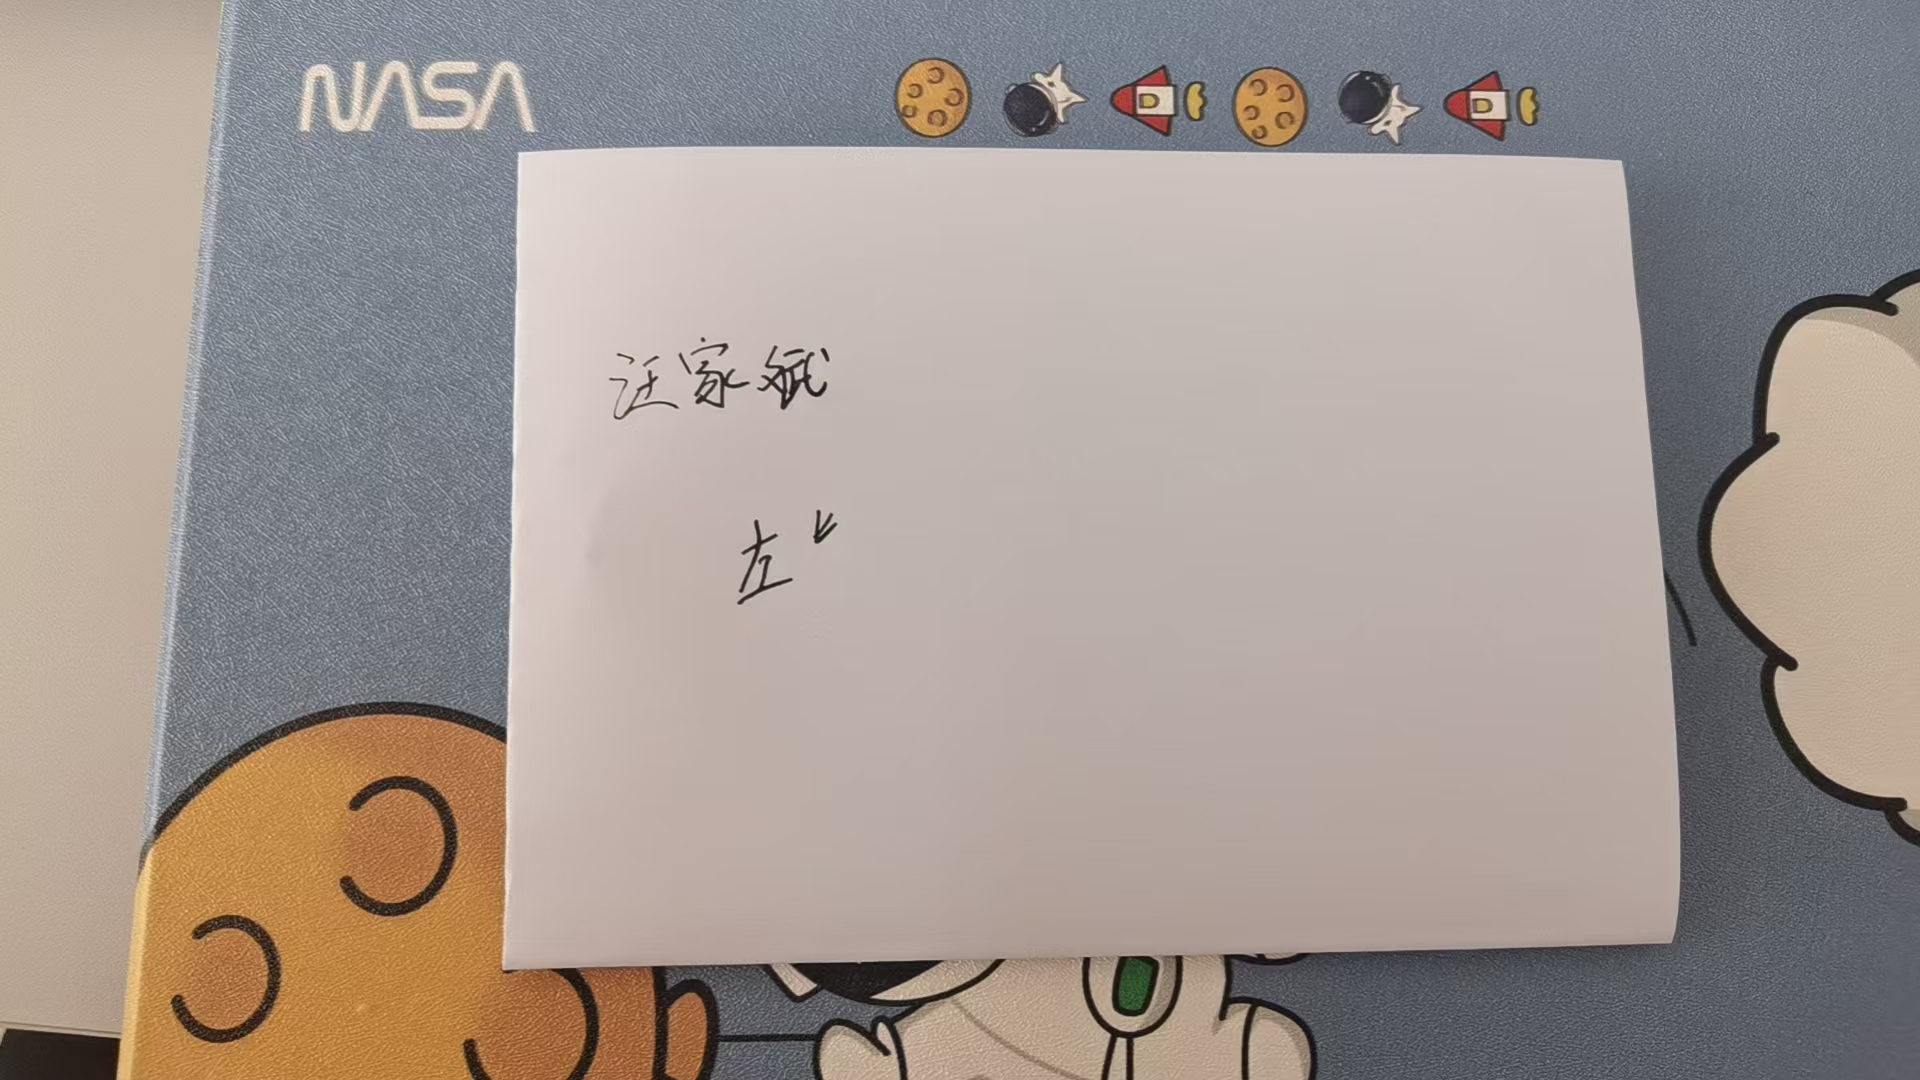 NASA
汪家斌
左